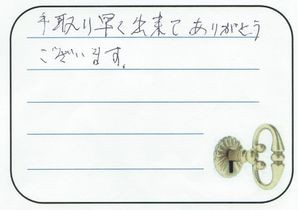 手取り早く出来てありがとう
ございます。